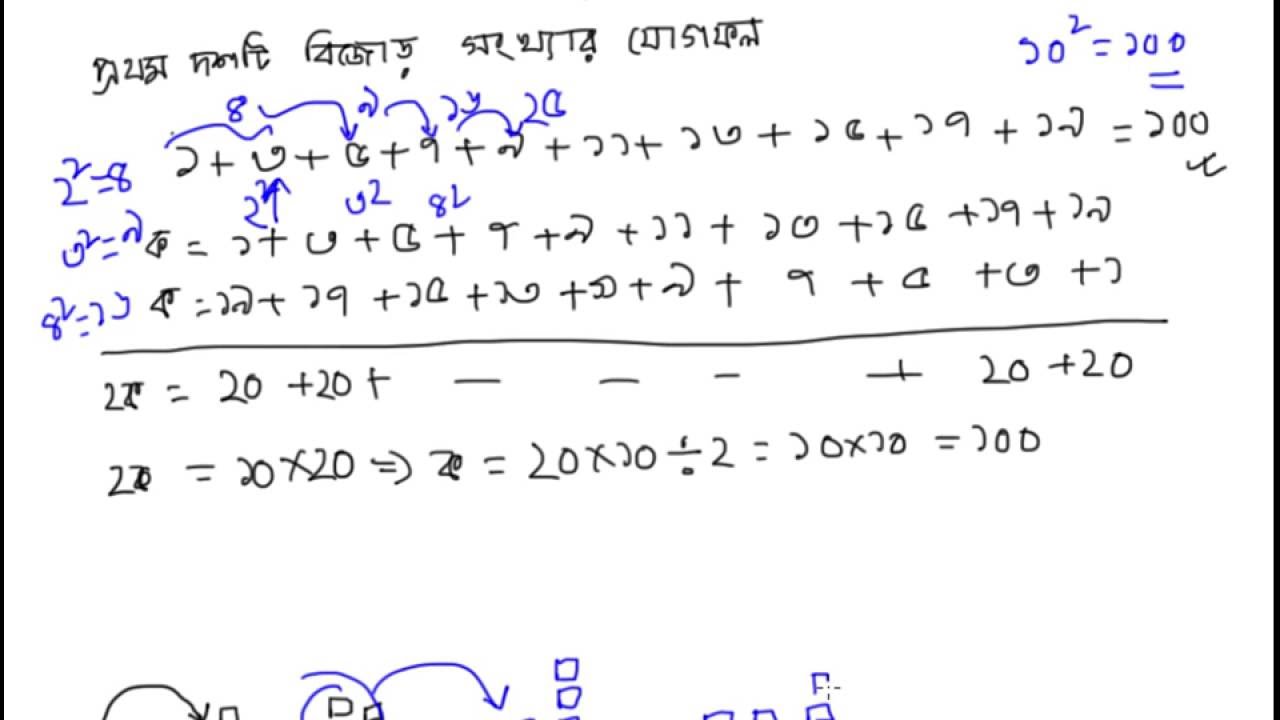 প্রথম দশটি বিজোড় সংখ্যার যোগফল
১০² = ১০০
৪ ৯ ১৬ ২৫
২² = ৪
১ + ৩ + ৫ + ৭ + ৯ + ১১ + ১৩ + ১৫ + ১৭ + ১৯ = ১০০
২² ৩² ৪²
৩² = ৯
ক = ১ + ৩ + ৫ + ৭ + ৯ + ১১ + ১৩ + ১৫ + ১৭ + ১৯
৪² = ১৬
ক = ১৯ + ১৭ + ১৫ + ১৩ + ১১ + ৯ + ৭ + ৫ + ৩ + ১
২ক = ২০ + ২০ + — — - + ২০ + ২০
২ক = ১০ × ২০ ⇒ ক = ২০ × ১০ ÷ ২ = ১০ × ১০ = ১০০